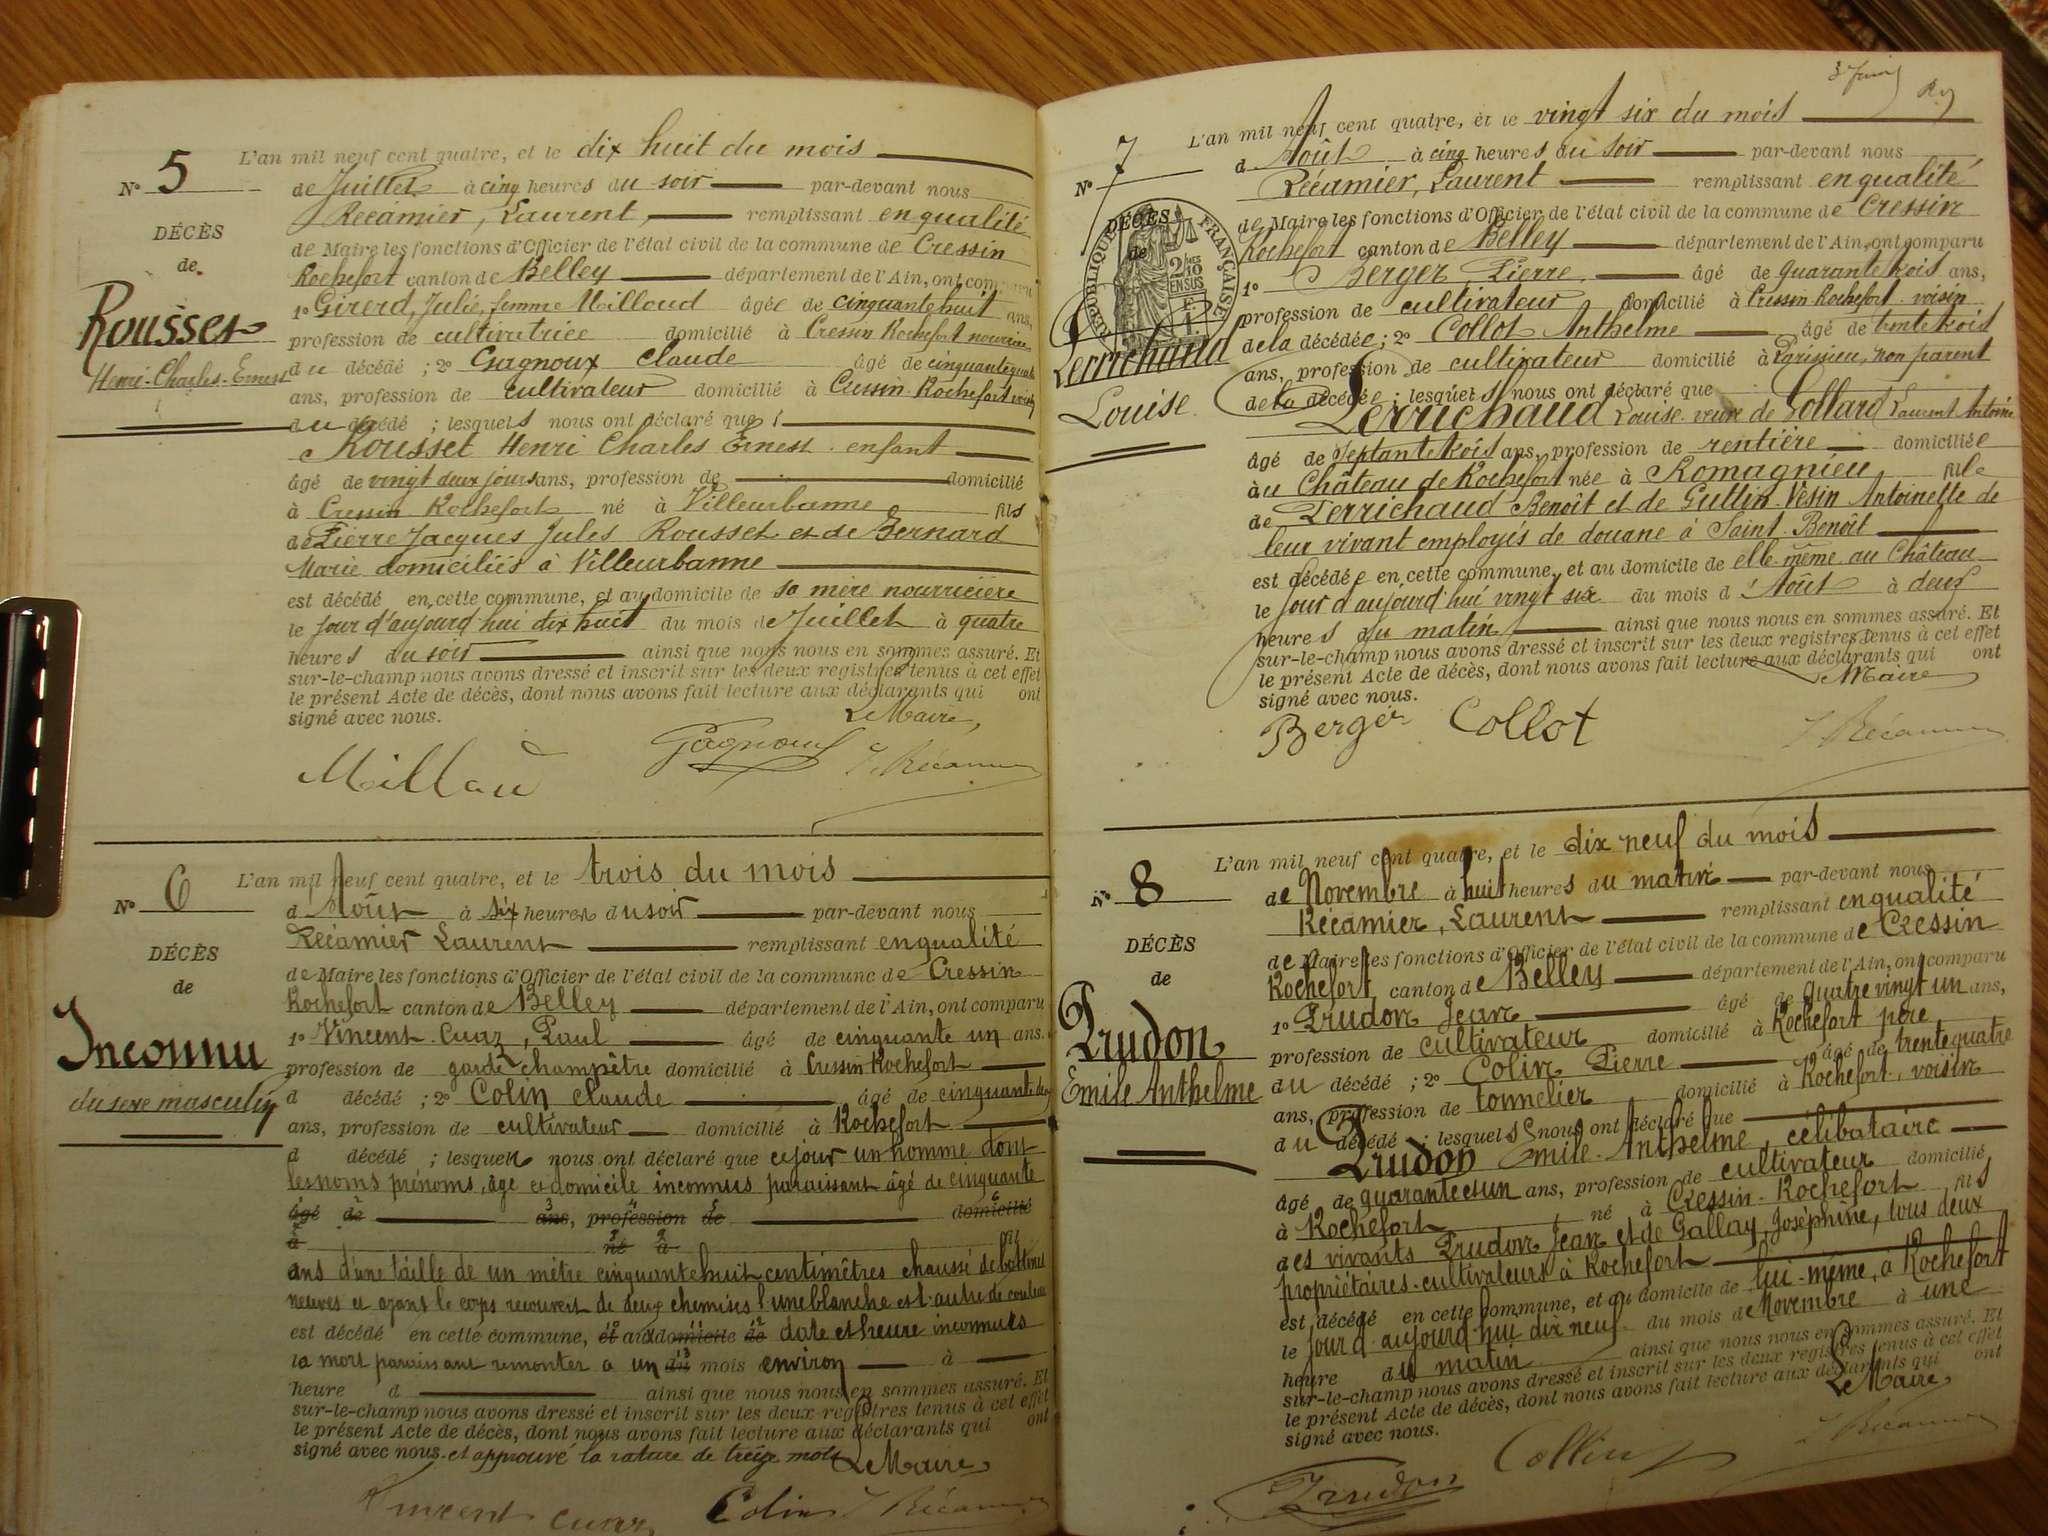 N° 5
DÉCÈS
de
Rousset
Henri-Charles-Ernest
L'an mil neuf cent quatre, et le dix huit du mois
de Juillet à cinq heures du soir par-devant nous
Récamier, Laurent, remplissant en qualité
de Maire les fonctions d'Officier de l'état civil de la commune de Cressin
Rochefort canton de Belley département de l'Ain, ont comparu
1° Girerd, Julie, femme Milloud âgée de cinquante huit ans,
profession de cultivatrice domicilié à Cressin Rochefort nourrice
du décédé ; 2° Gagnoux Claude âgé de cinquante quatre
ans, profession de cultivateur domicilié à Cressin-Rochefort voisin
du décédé ; lesquels nous ont déclaré que
Rousset Henri Charles Ernest enfant
âgé de vingt deux jours ans, profession de domicilié
à Cressin Rochefort né à Villeurbanne fils
de Pierre Jacques Jules Rousset et de Bernard
Marie domiciliés à Villeurbanne
est décédé en cette commune, et au domicile de sa mère nourricière
le jour d'aujourd'hui dix huit du mois de Juillet à quatre
heures du soir ainsi que nous nous en sommes assuré. Et
sur-le-champ nous avons dressé et inscrit sur les deux registres tenus à cet effet
le présent Acte de décès, dont nous avons fait lecture aux déclarants qui ont
signé avec nous.
Le Maire,
Millau Gagnoux J. Récamier
N° 6
DÉCÈS
de
Inconnu
du sexe masculin
L'an mil neuf cent quatre, et le trois du mois
d'Août à six heures du soir par-devant nous
Récamier Laurent remplissant en qualité
de Maire les fonctions d'Officier de l'état civil de la commune de Cressin
Rochefort canton de Belley département de l'Ain, ont comparu
1° Vincent-Cuaz, Paul âgé de cinquante un ans.
profession de garde champêtre domicilié à Cressin Rochefort
d décédé ; 2° Colin Claude âgé de cinquante deux
ans, profession de cultivateur domicilié à Rochefort
d décédé ; lesquels nous ont déclaré que ce jour un homme dont
les noms prénoms, âge et domicile inconnus paraissant âgé de cinquante
âgé de ans, profession de domicilié
à né à fils
ans d'une taille de un mètre cinquante huit centimètres chaussé de bottines
neuves et ayant le corps recouvert de deux chemises l'une blanche et l'autre de couleur
est décédé en cette commune, et au domicile de date et heure inconnues
la mort paraissant remonter à un du mois environ à
heure d ainsi que nous nous en sommes assuré. Et
sur-le-champ nous avons dressé et inscrit sur les deux registres tenus à cet effet
le présent Acte de décès, dont nous avons fait lecture aux déclarants qui ont
signé avec nous. et approuvé la rature de treize mots Le Maire,
Vincent Cuaz Colin J. Récamier
N° 7
DÉCÈS
de
RÉPUBLIQUE FRANÇAISE
2/10 EN SUS
Perrichaud
Louise
L'an mil neuf cent quatre, et le vingt six du mois
d'Août à cinq heures du soir par-devant nous
Récamier, Laurent remplissant en qualité
de Maire les fonctions d'Officier de l'état civil de la commune de Cressin
Rochefort canton de Belley département de l'Ain, ont comparu
1° Berger Pierre âgé de quarante trois ans,
profession de cultivateur domicilié à Cressin Rochefort voisin
de la décédée ; 2° Collot Anthelme âgé de trente trois
ans, profession de cultivateur domicilié à Parissieu, non parent
de la décédée ; lesquels nous ont déclaré que
Perrichaud Louise veuve de Gollard Laurent Antoine
âgé de septante trois ans, profession de rentière domiciliée
au Château de Rochefort née à Romagnieu fille
de Perrichaud Benoît et de Guttin Vesin Antoinette de
leur vivant employés de douane à Saint Benoît
est décédée en cette commune, et au domicile de elle-même au Château
le jour d'aujourd'hui vingt six du mois d'Août à deux
heures du matin ainsi que nous nous en sommes assuré. Et
sur-le-champ nous avons dressé et inscrit sur les deux registres tenus à cet effet
le présent Acte de décès, dont nous avons fait lecture aux déclarants qui ont
signé avec nous. Le Maire
Berger Collot J. Récamier
N° 8
DÉCÈS
de
Prudon
Emile Anthelme
L'an mil neuf cent quatre, et le dix neuf du mois
de Novembre à huit heures du matin par-devant nous
Récamier, Laurent remplissant en qualité
de Maire les fonctions d'Officier de l'état civil de la commune de Cressin
Rochefort, canton de Belley département de l'Ain, ont comparu
1° Prudon Jean âgé de quatre vingt un ans,
profession de cultivateur domicilié à Rochefort père
du décédé ; 2° Colin Pierre âgé de trente quatre
ans, profession de tonnelier domicilié à Rochefort, voisin
du décédé ; lesquels nous ont déclaré que
Prudon Emile-Anthelme, célibataire
âgé de quarante et un ans, profession de cultivateur domicilié
à Rochefort né à Cressin-Rochefort fils
des vivants Prudon Jean et de Gallay, Joséphine, tous deux
propriétaires-cultivateurs à Rochefort
est décédé en cette commune, et au domicile de lui-même, à Rochefort
le jour d'aujourd'hui dix neuf du mois de Novembre à une
heure du matin ainsi que nous nous en sommes assuré. Et
sur-le-champ nous avons dressé et inscrit sur les deux registres tenus à cet effet
le présent Acte de décès, dont nous avons fait lecture aux déclarants qui ont
signé avec nous. Le Maire,
Prudon Collin J. Récamier